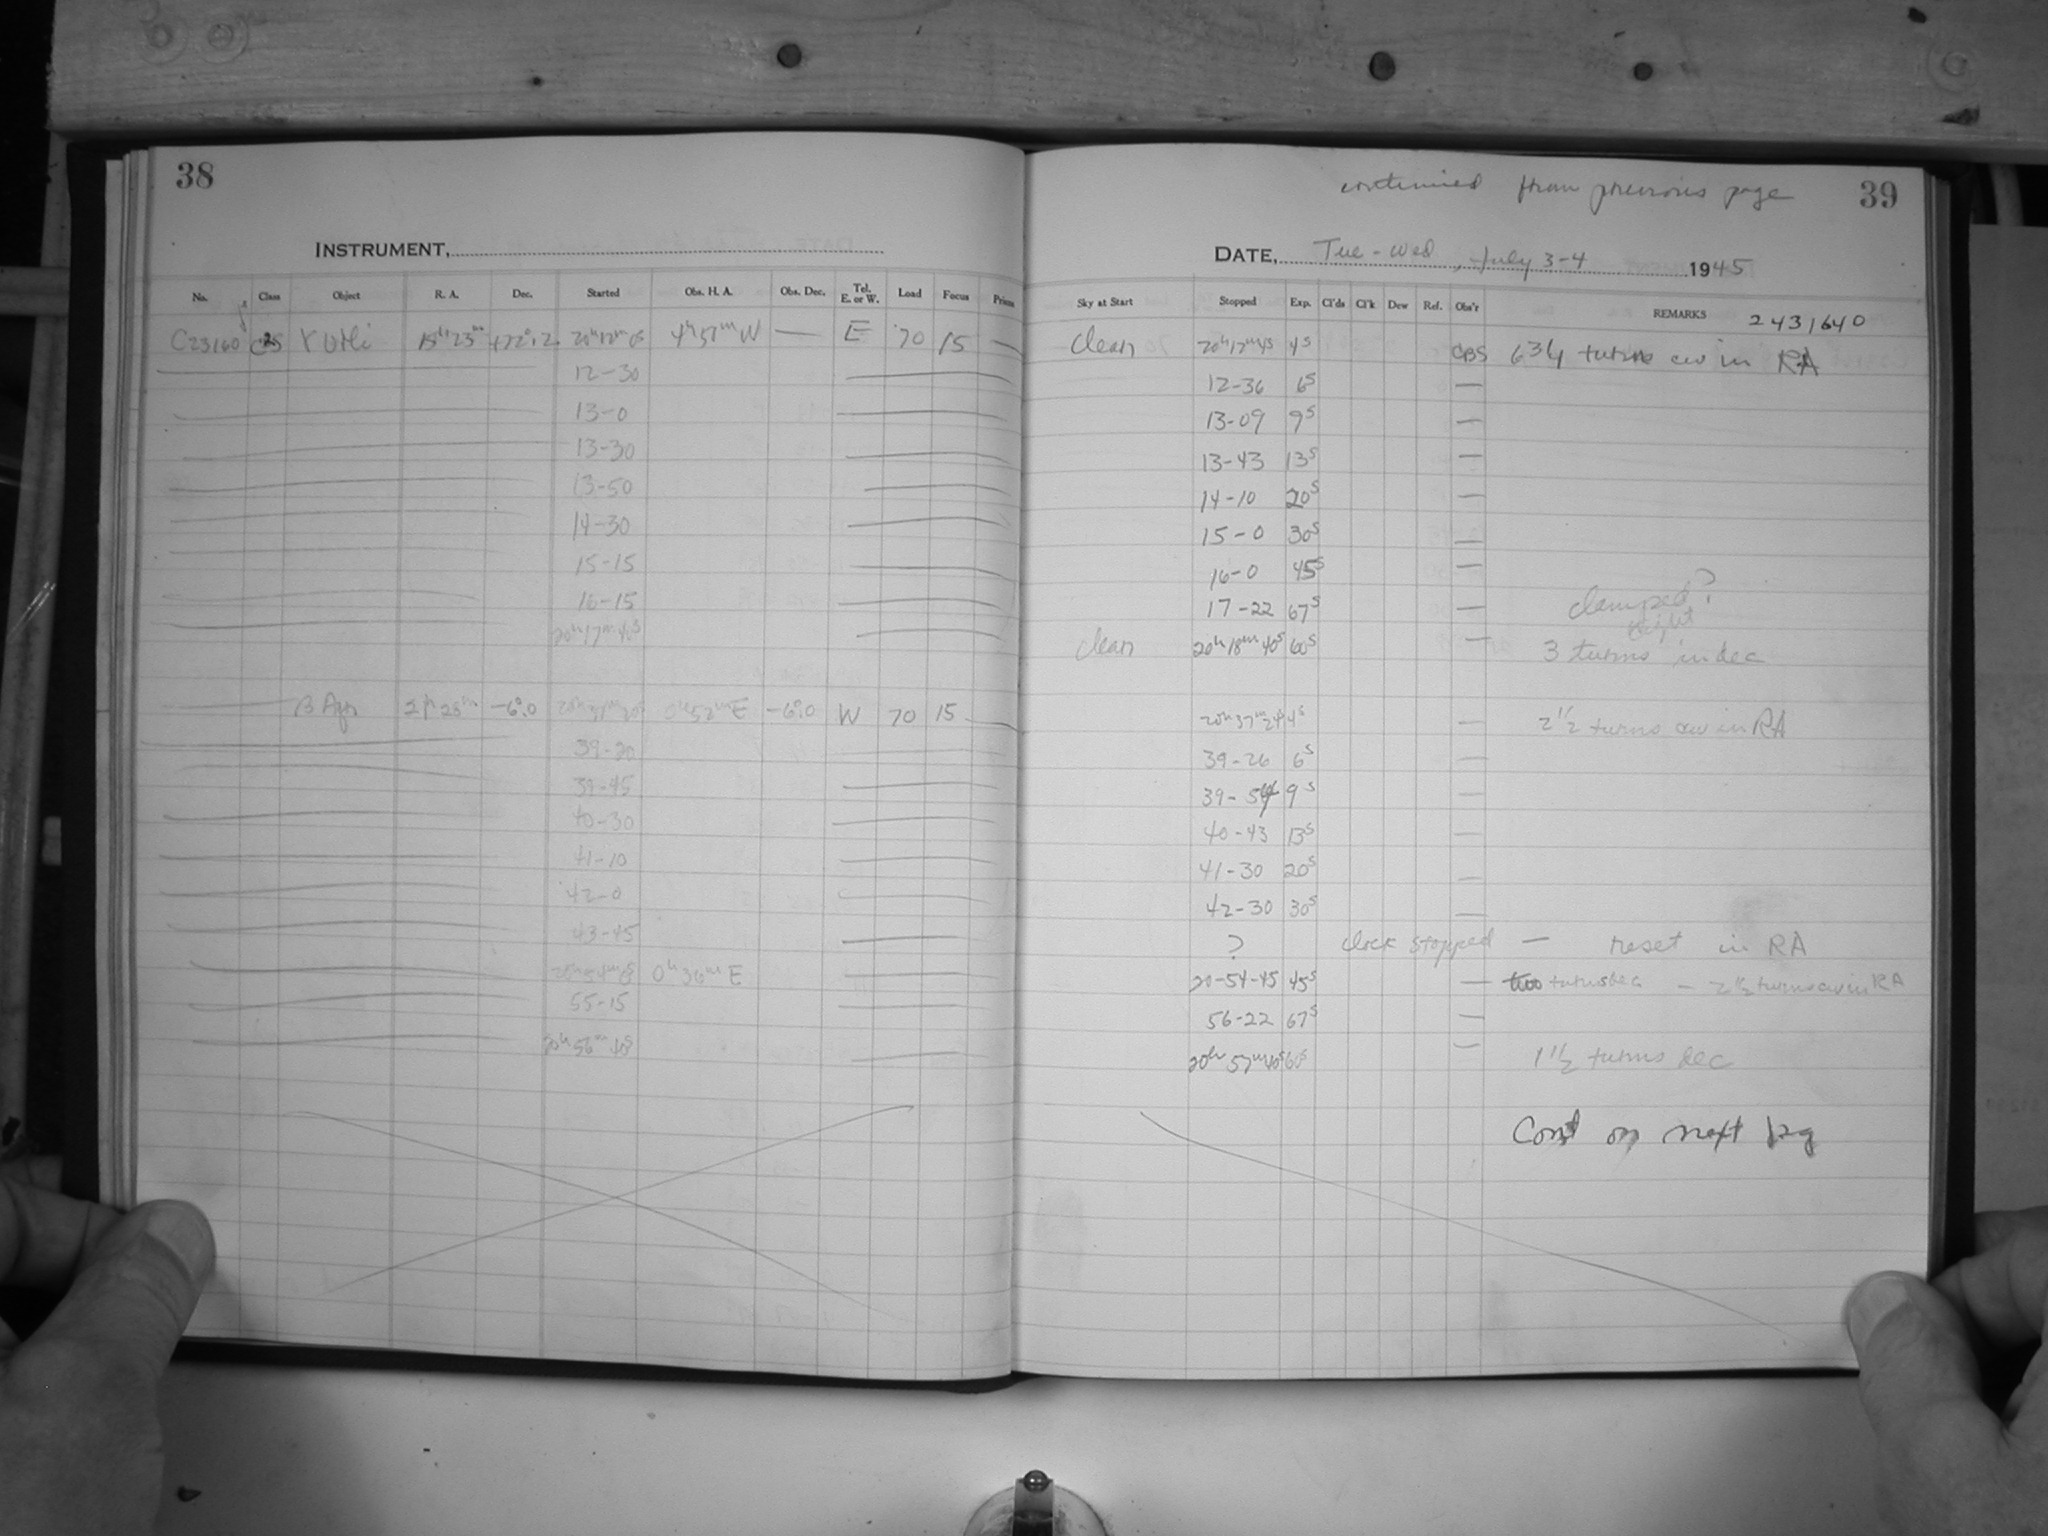 38
INSTRUMENT,
No. Class Object R. A. Dec. Started Obs. H. A. Obs. Dec. Tel. E. or W. Load Focus Prism
C23160 γ UMi 15h23m +72°.2 4h57mW — E 70 15 —
12-30
13-0
13-30
13-50
14-30
15-15
16-15
20h17m40s
β Aqr 21h28m -6°.0 0h52mE -6°.0 W 70 15 —
39-20
39-45
40-30
41-10
42-0
43-45
0h36mE
55-15
20h56m40s
continued from previous page 39
DATE, Tue-Wed, July 3-4 1945
Sky at Start Stopped Exp. Cl'ds Cl'k Dew Ref. Obs'r REMARKS 2431640
Clear 4s CBS 6 3/4 turns cw in RA
12-36 6s —
13-09 9s —
13-43 13s —
14-10 20s —
15-0 30s —
16-0 45s —
17-22 67s — clamped?
clear 20h18m40s 60s — 3 turns in dec
20h37m24s 4s — 2 1/2 turns cw in RA
39-26 6s —
39-54 9s —
40-43 13s —
41-30 20s —
42-30 30s —
? clock stopped — reset in RA
20-54-45 45s — two turns dec - 2 1/2 turns cw in RA
56-22 67s —
20h57m40s 60s — 1 1/2 turns dec
Cont on next pg